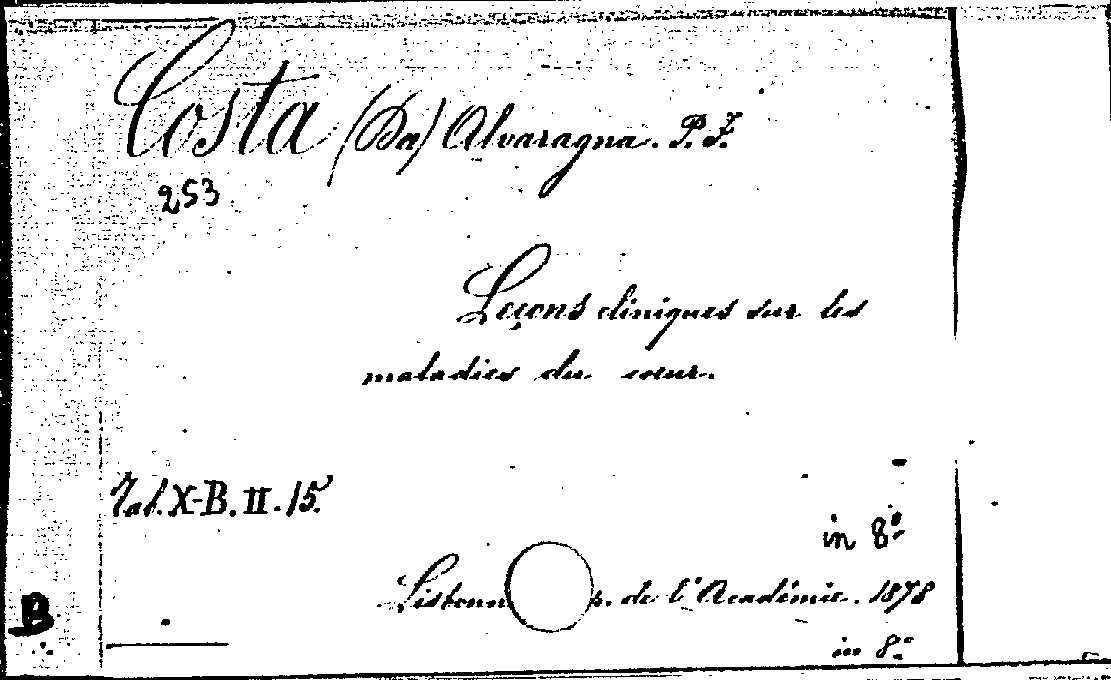 Costa (Da) Alvaragna. P. F.
253
Leçons cliniques sur les
maladies du cœur.
X-B. II. 15.
in 8º
de l'Académie. 1878
B
in 8º